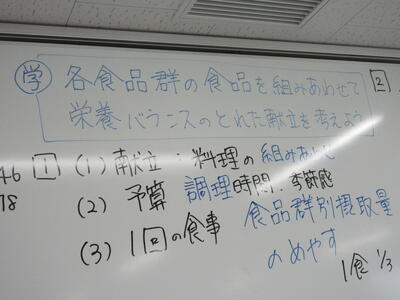 学 各食品群の食品を組みあわせて
栄養バランスのとれた献立を考えよう
2
46 1 (1) 献立：料理の組みあわせ
78 (2) 予算 調理時間・季節感
(3) 1回の食事
食品群別摂取量
のめやす
1食 1/3